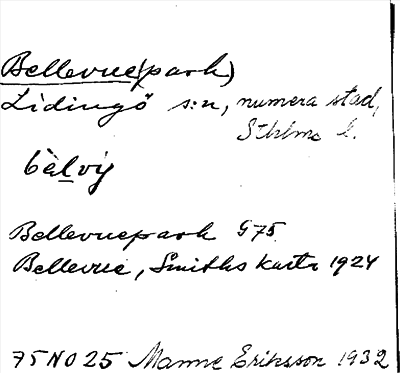 Bellevue(park)
Lidingö s:n, numera stad,
Sthlms l.
bèlvi̇́y
Bellevuepark G75
Bellevue, Smiths karta 1924
75 NO 25 Manne Eriksson 1932